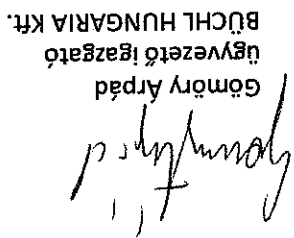 Gömöry Árpád
Gömöry Árpád
ügyvezető igazgató
BÜCHL HUNGARIA Kft.